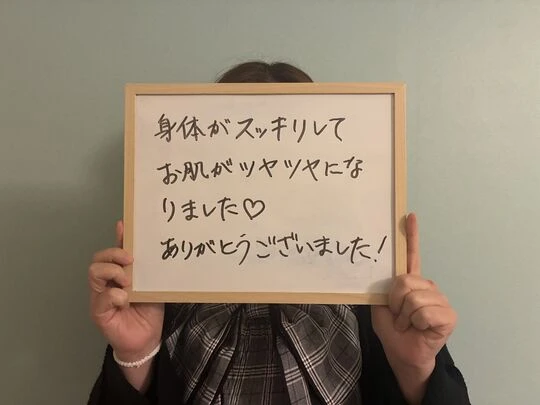 身体がスッキリして
お肌がツヤツヤにな
りました♡
ありがとうございました!